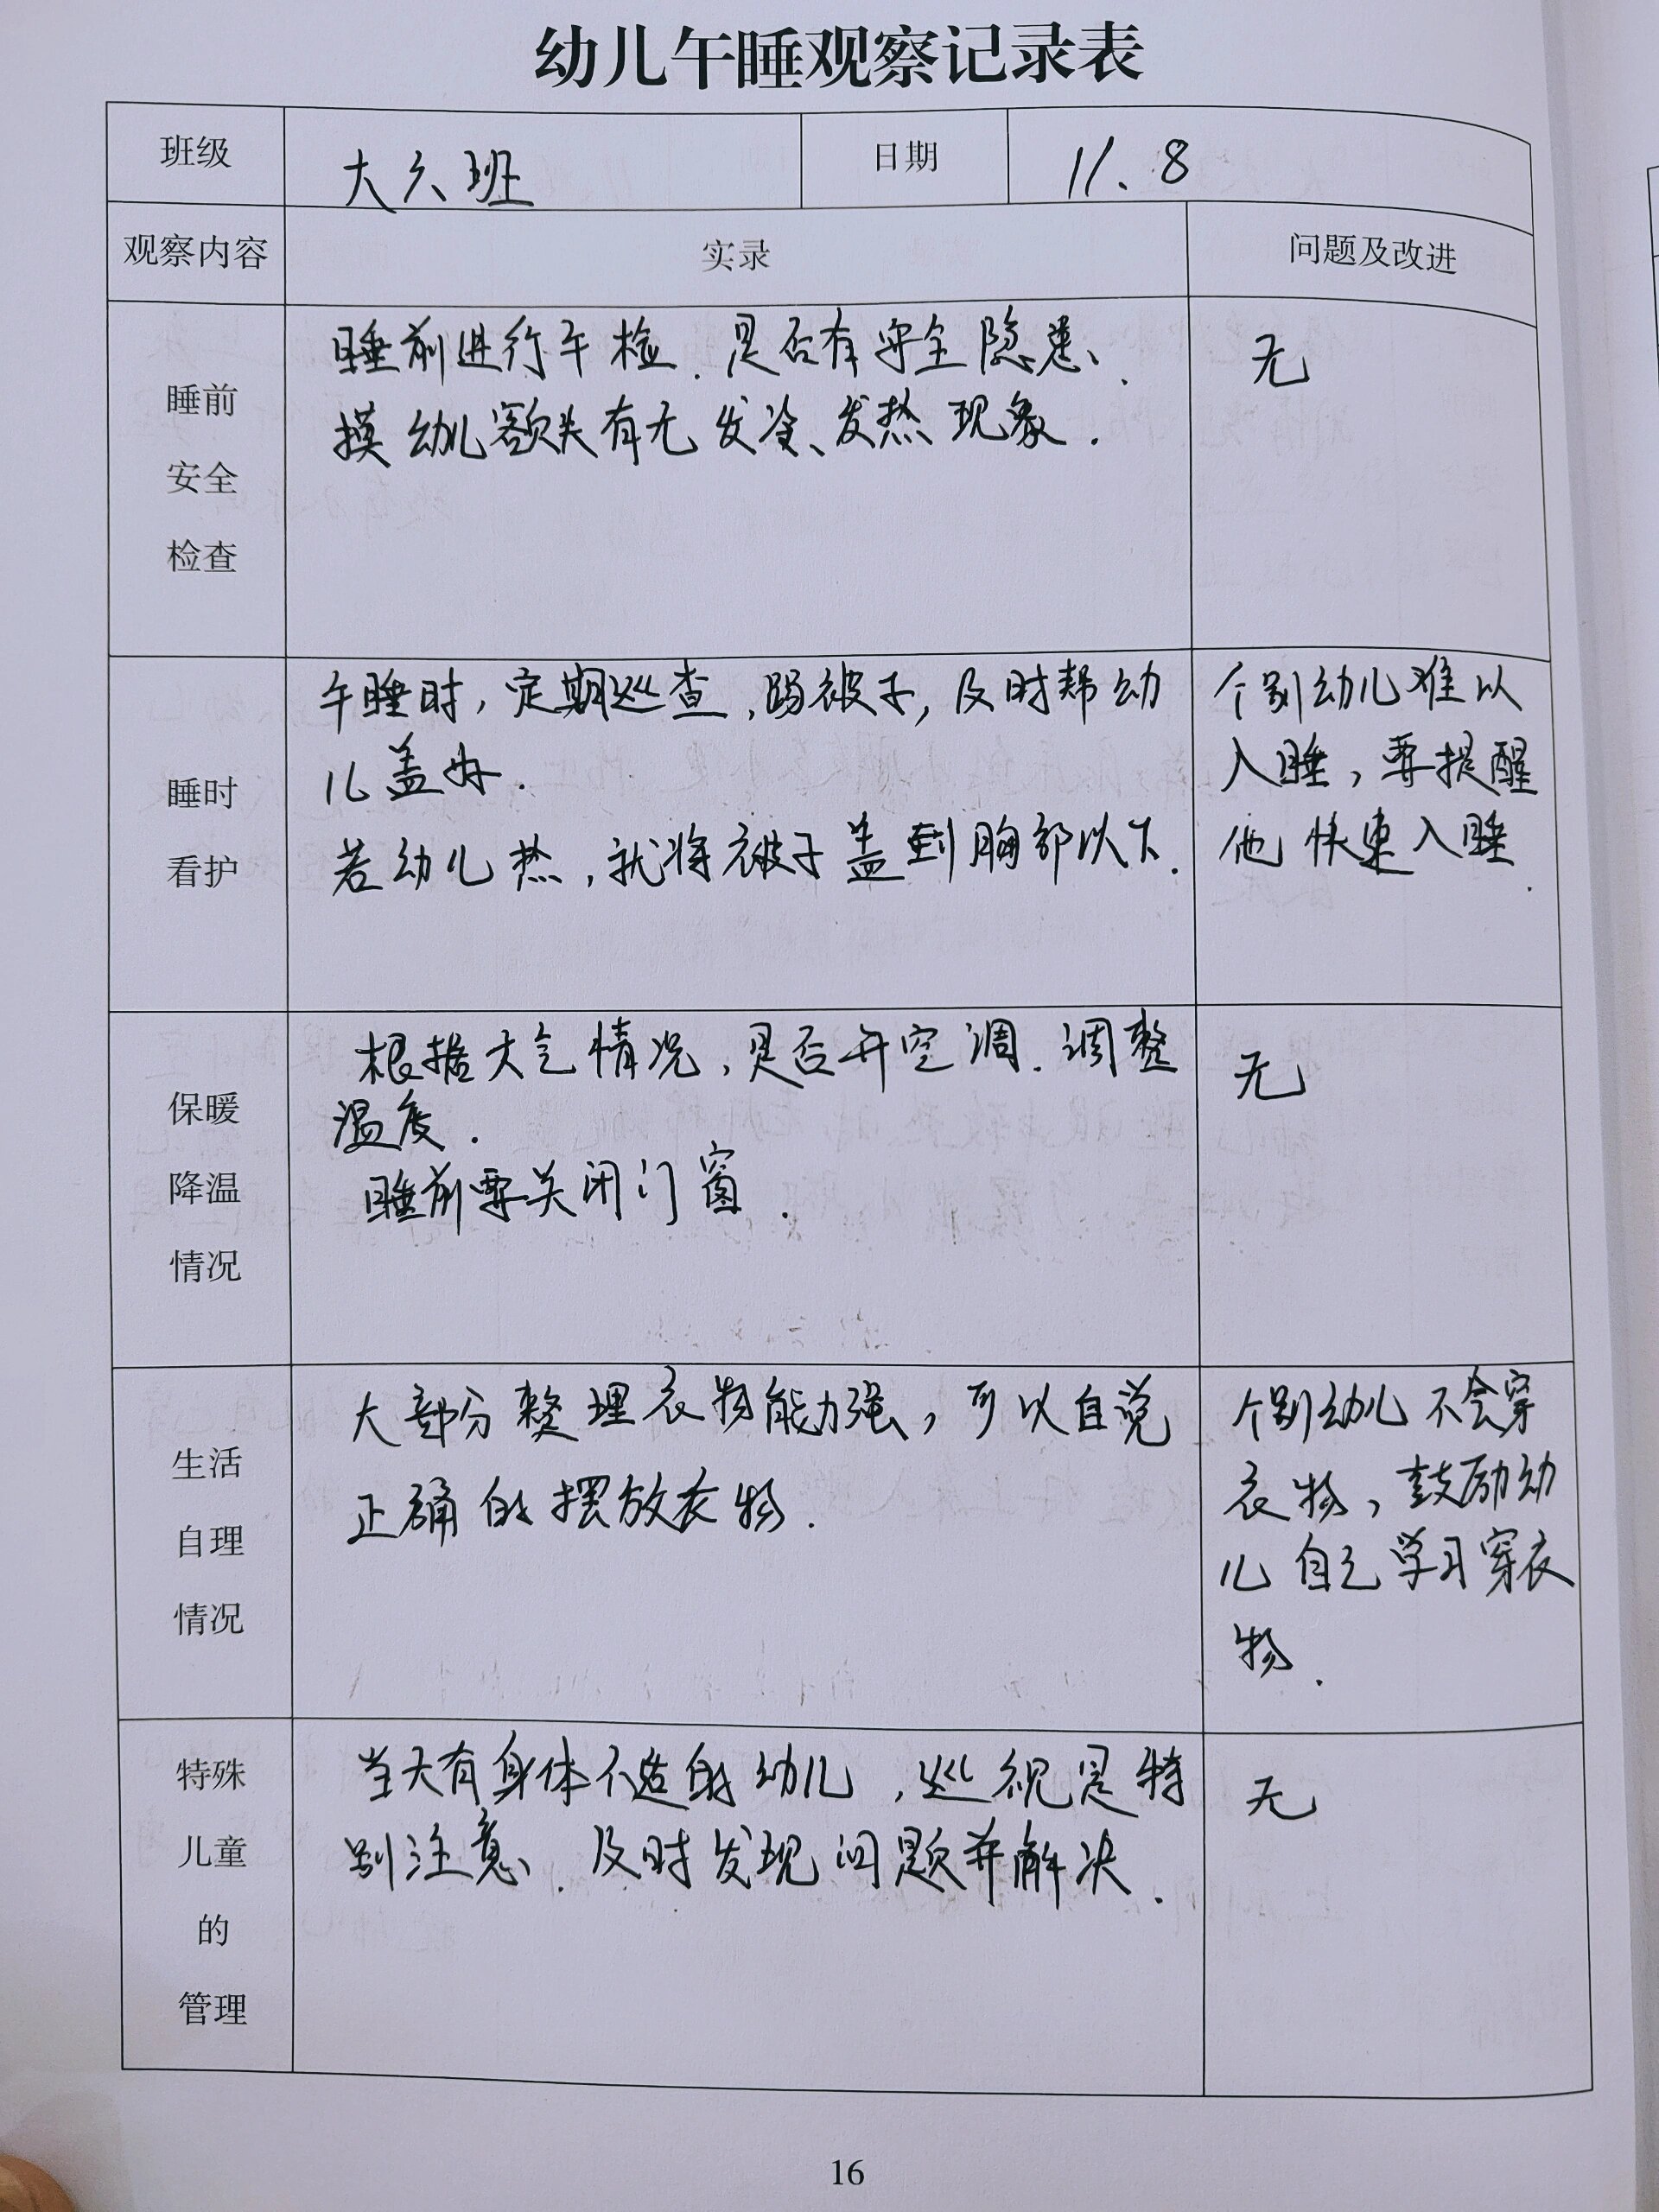 幼儿午睡观察记录表
班级 大六班 日期 11.8
观察内容 实录 问题及改进
睡前
安全
检查
睡前进行午检.是否有安全隐患、
摸幼儿额头有无发冷、发热现象.
无
睡时
看护
午睡时,定期巡查,踢被子,及时帮幼
儿盖好.
若幼儿热,就将被子盖到胸部以下.
个别幼儿难以
入睡,要提醒
他快速入睡.
保暖
降温
情况
根据天气情况,是否开空调.调整
温度.
睡前要关闭门窗.
无
生活
自理
情况
大部分整理衣物能力强,可以自觉
正确的摆放衣物.
个别幼儿不会穿
衣物,鼓励幼
儿自己学习穿衣
物.
特殊
儿童
的
管理
当天有身体不适的幼儿,巡视是特
别注意.及时发现问题并解决.
无
16